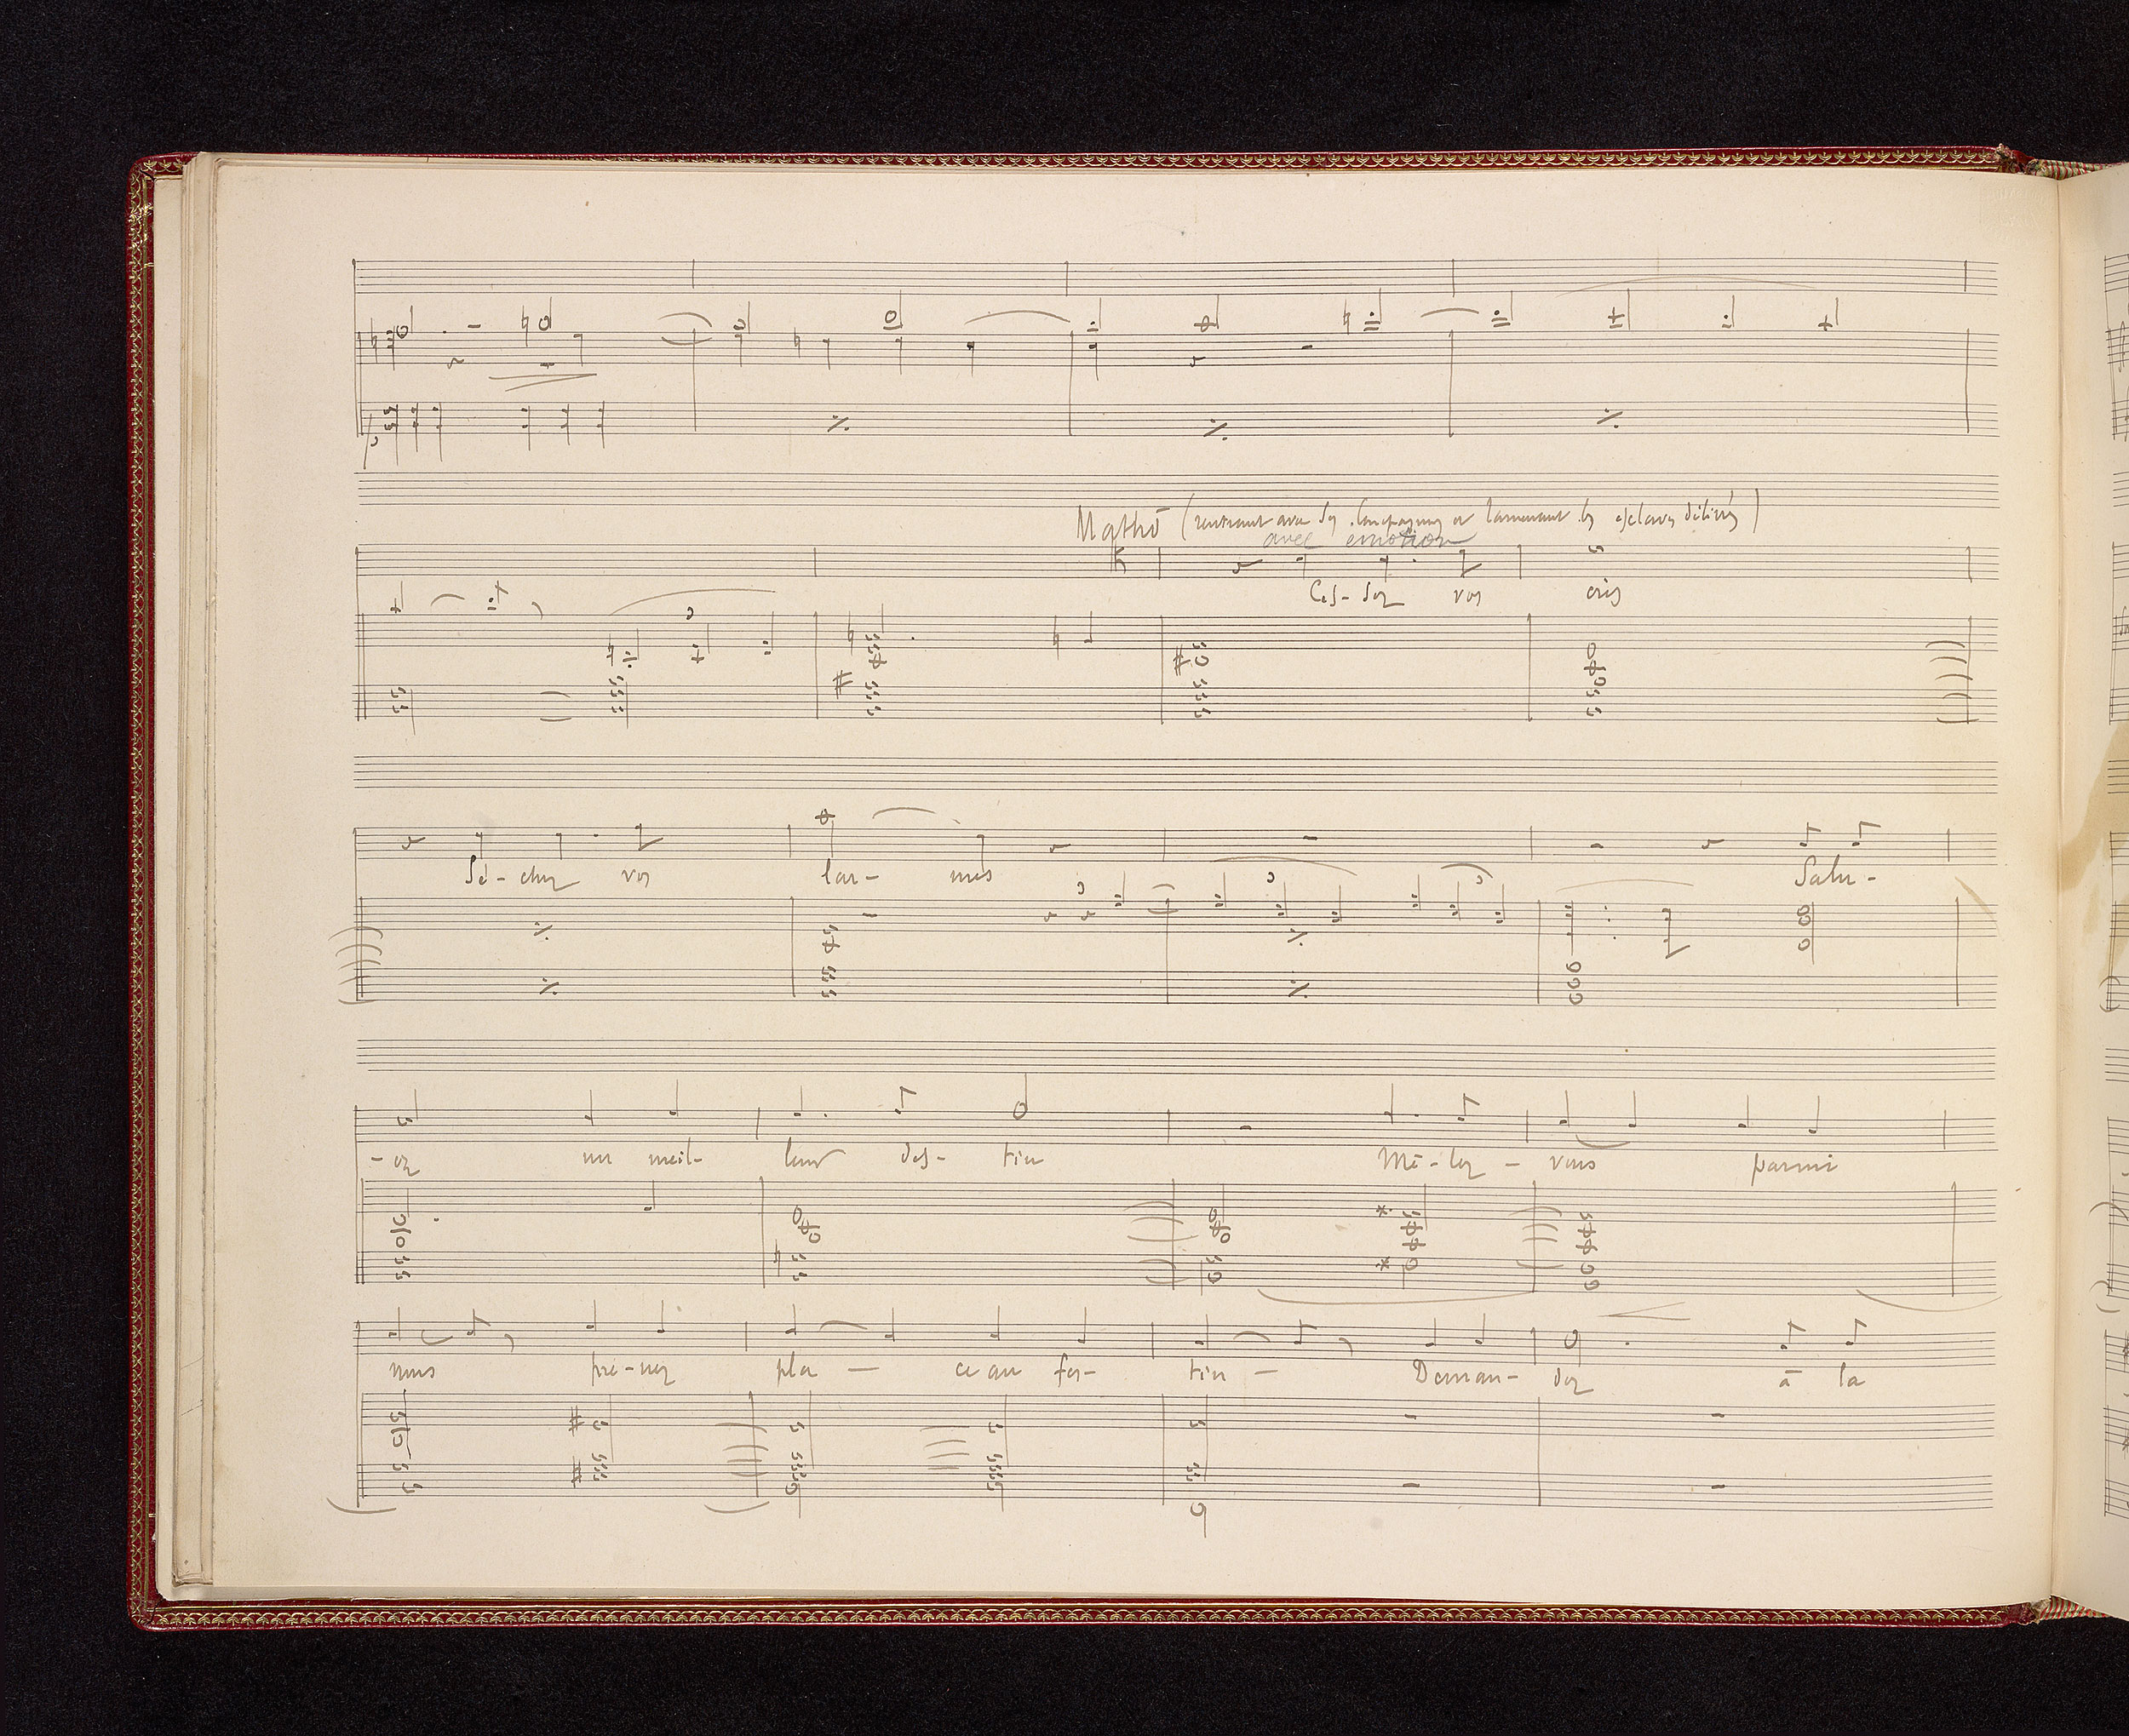 Mathô (rentrant avec ses compagnons et ramenant les esclaves délivrés)
avec émotion
Ces- sez vos cris
Sé- chez vos lar- mes Salu-
- ez un meil- leur des- tin Mê- lez - vous parmi
nous pre- nez pla — ce au fes- tin — Deman- dez à la